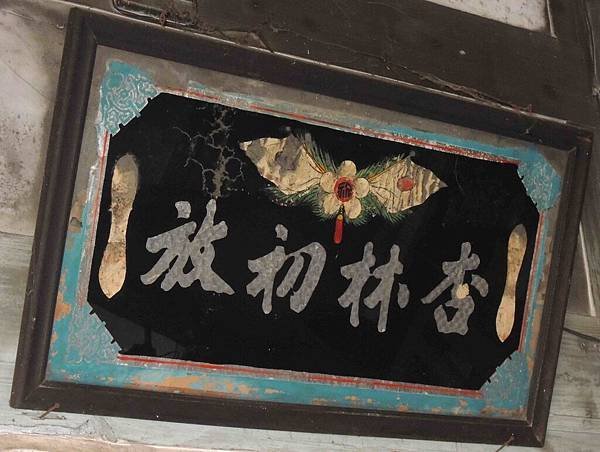 杏林初放